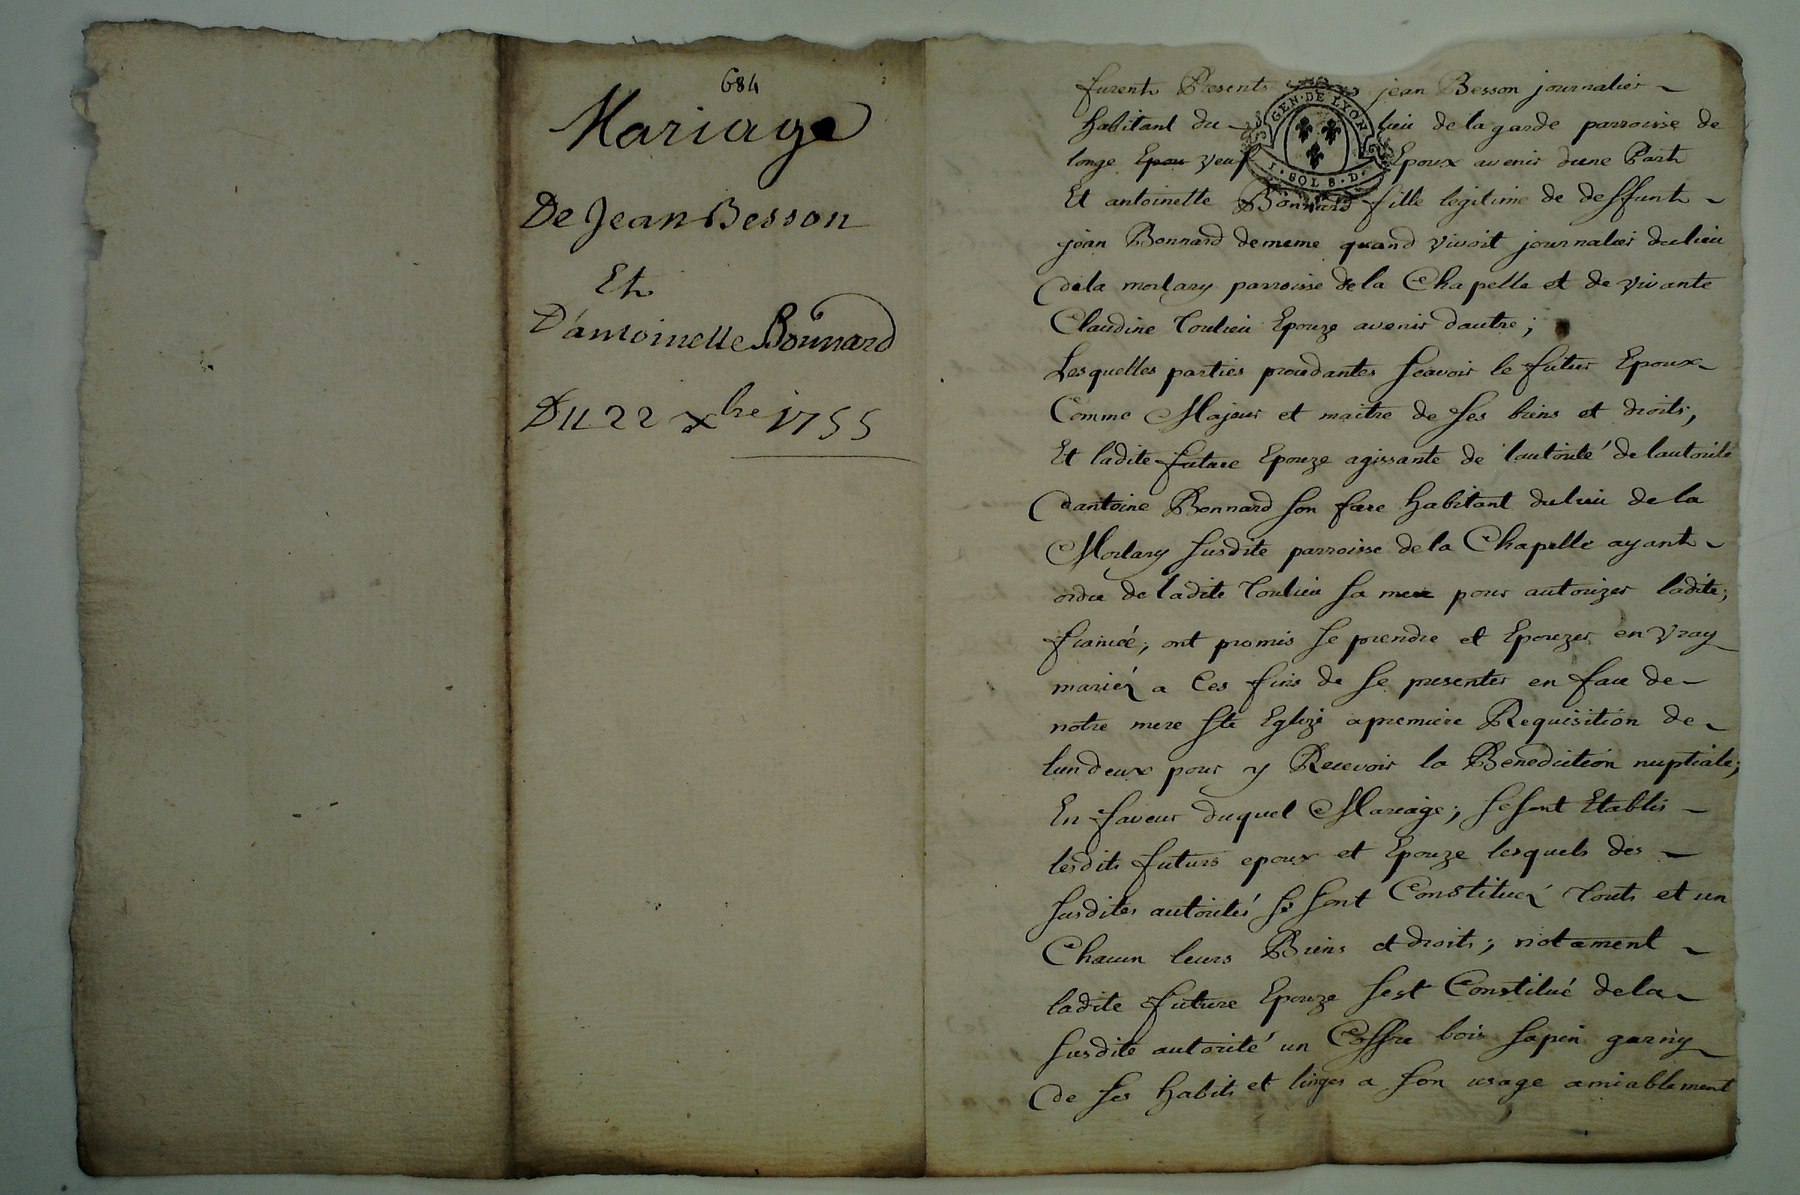 684
Mariage
De Jean Besson
Et
D'antoinette Bonnard
Du 22 xbre 1755
furent Presents jean Besson journalier
habitant du lieu de la garde parroisse de
longe Epou veuf Epoux avenir dune Part
Et antoinette Bonnard fille legitime de deffunt
jean Bonnard dememe quand vivoit journalier du lieu
de la morlary parroisse de la Chapelle et de vivante
Claudine Toulieu Epouze avenir dautre;
Lesquelles parties procedantes scavoir le futur Epoux
Comme Majeur et maitre de ses biens et droits,
Et ladite future Epouze agissante de l'autorité de lautorité
dantoine Bonnard son frere habitant du lieu de la
Morlary susdite parroisse de la Chapelle ayant
ordre de ladite Toulieu sa mere pour autorizer ladite;
fiancée, ont promis se prendre et Epouzer en vray
mariéz a Ces fins de se presenter en face de
notre mere ste Eglize a premiere Requisition de
lun deux pour y Recevoir la Benediction nuptiale;
En faveur duquel Mariage; se sont Etablis
lesdits futurs epoux et Epouze lesquels des
susdites autorités se sont Constituéz Touts et un
Chacun leurs Biens et droits; notament
ladite future Epouze sest Constitué de la
susdite autorité un Coffre bois sapin garny
de ses habits et linges a son usage amiablement
GEN·DE LYON
1·SOL 8·D·